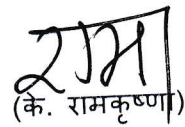 रामा
(के. रामकृष्णा)